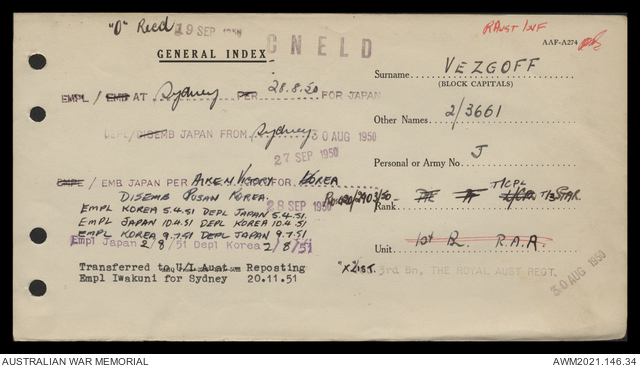 "O" Recd 29 SEP 1950
R Aust Inf
CNELD
GENERAL INDEX
AAF-A274
Surname VEZGOFF
(BLOCK CAPITALS)
EMPL / EMB AT Sydney PER 28.8.50 FOR JAPAN
Other Names 2/3661
DEPL/DISEMB JAPAN FROM Sydney 30 AUG 1950
27 SEP 1950
Personal or Army No J
EMPL / EMB JAPAN PER AIKEN VICTORY FOR KOREA
DISEMB PUSAN KOREA
28 SEP 1950
Rank T/CPL T/3 STAR
EMPL KOREA 5.4.51 DEPL JAPAN 5.4.51
EMPL JAPAN 10.4.51 DEPL KOREA 10.4.51
EMPL KOREA 9.7.51 DEPL JAPAN 9.7.51
Empl Japan 2/8/51 Depl Korea 2/8/51
Unit 1st Bn R.A.R.
"X" LIST. 3rd Bn, THE ROYAL AUST REGT.
30 AUG 1950
Transferred to U/L Aust Reposting
Empl Iwakuni for Sydney 20.11.51
AUSTRALIAN WAR MEMORIAL AWM2021.146.34